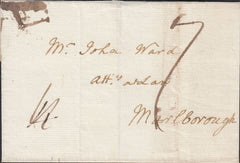 Mr. John Ward
Atty at Law
Marlborough
7